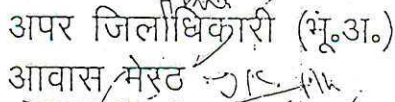 अपर जिलाधिकारी (भू०अ०)
आवास मेरठ